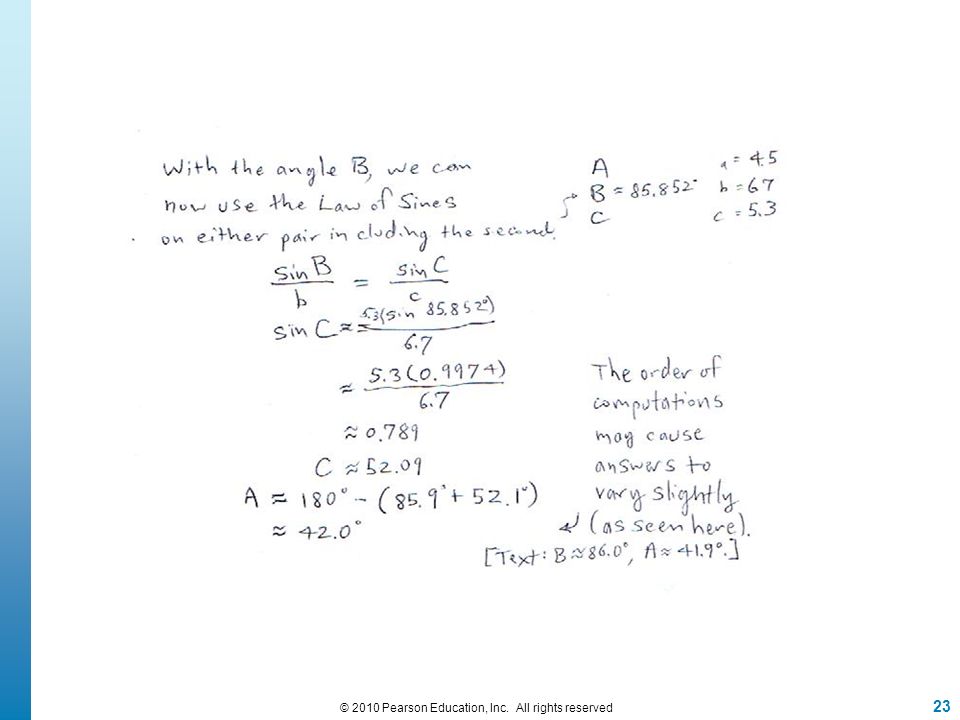 With the angle B, we can
now use the Law of Sines
on either pair including the second.
A
B = 85.852°
C
a = 4.5
b = 6.7
c = 5.3
sin B / b = sin C / c
sin C ≈ = 5.3(sin 85.852°) / 6.7
≈ 5.3(0.9974) / 6.7
≈ 0.789
C ≈ 52.09
A ≈ 180° - (85.9° + 52.1°)
≈ 42.0°
The order of
computations
may cause
answers to
vary slightly
(as seen here).
[Text: B ≈ 86.0°, A ≈ 41.9°.]
© 2010 Pearson Education, Inc. All rights reserved
23